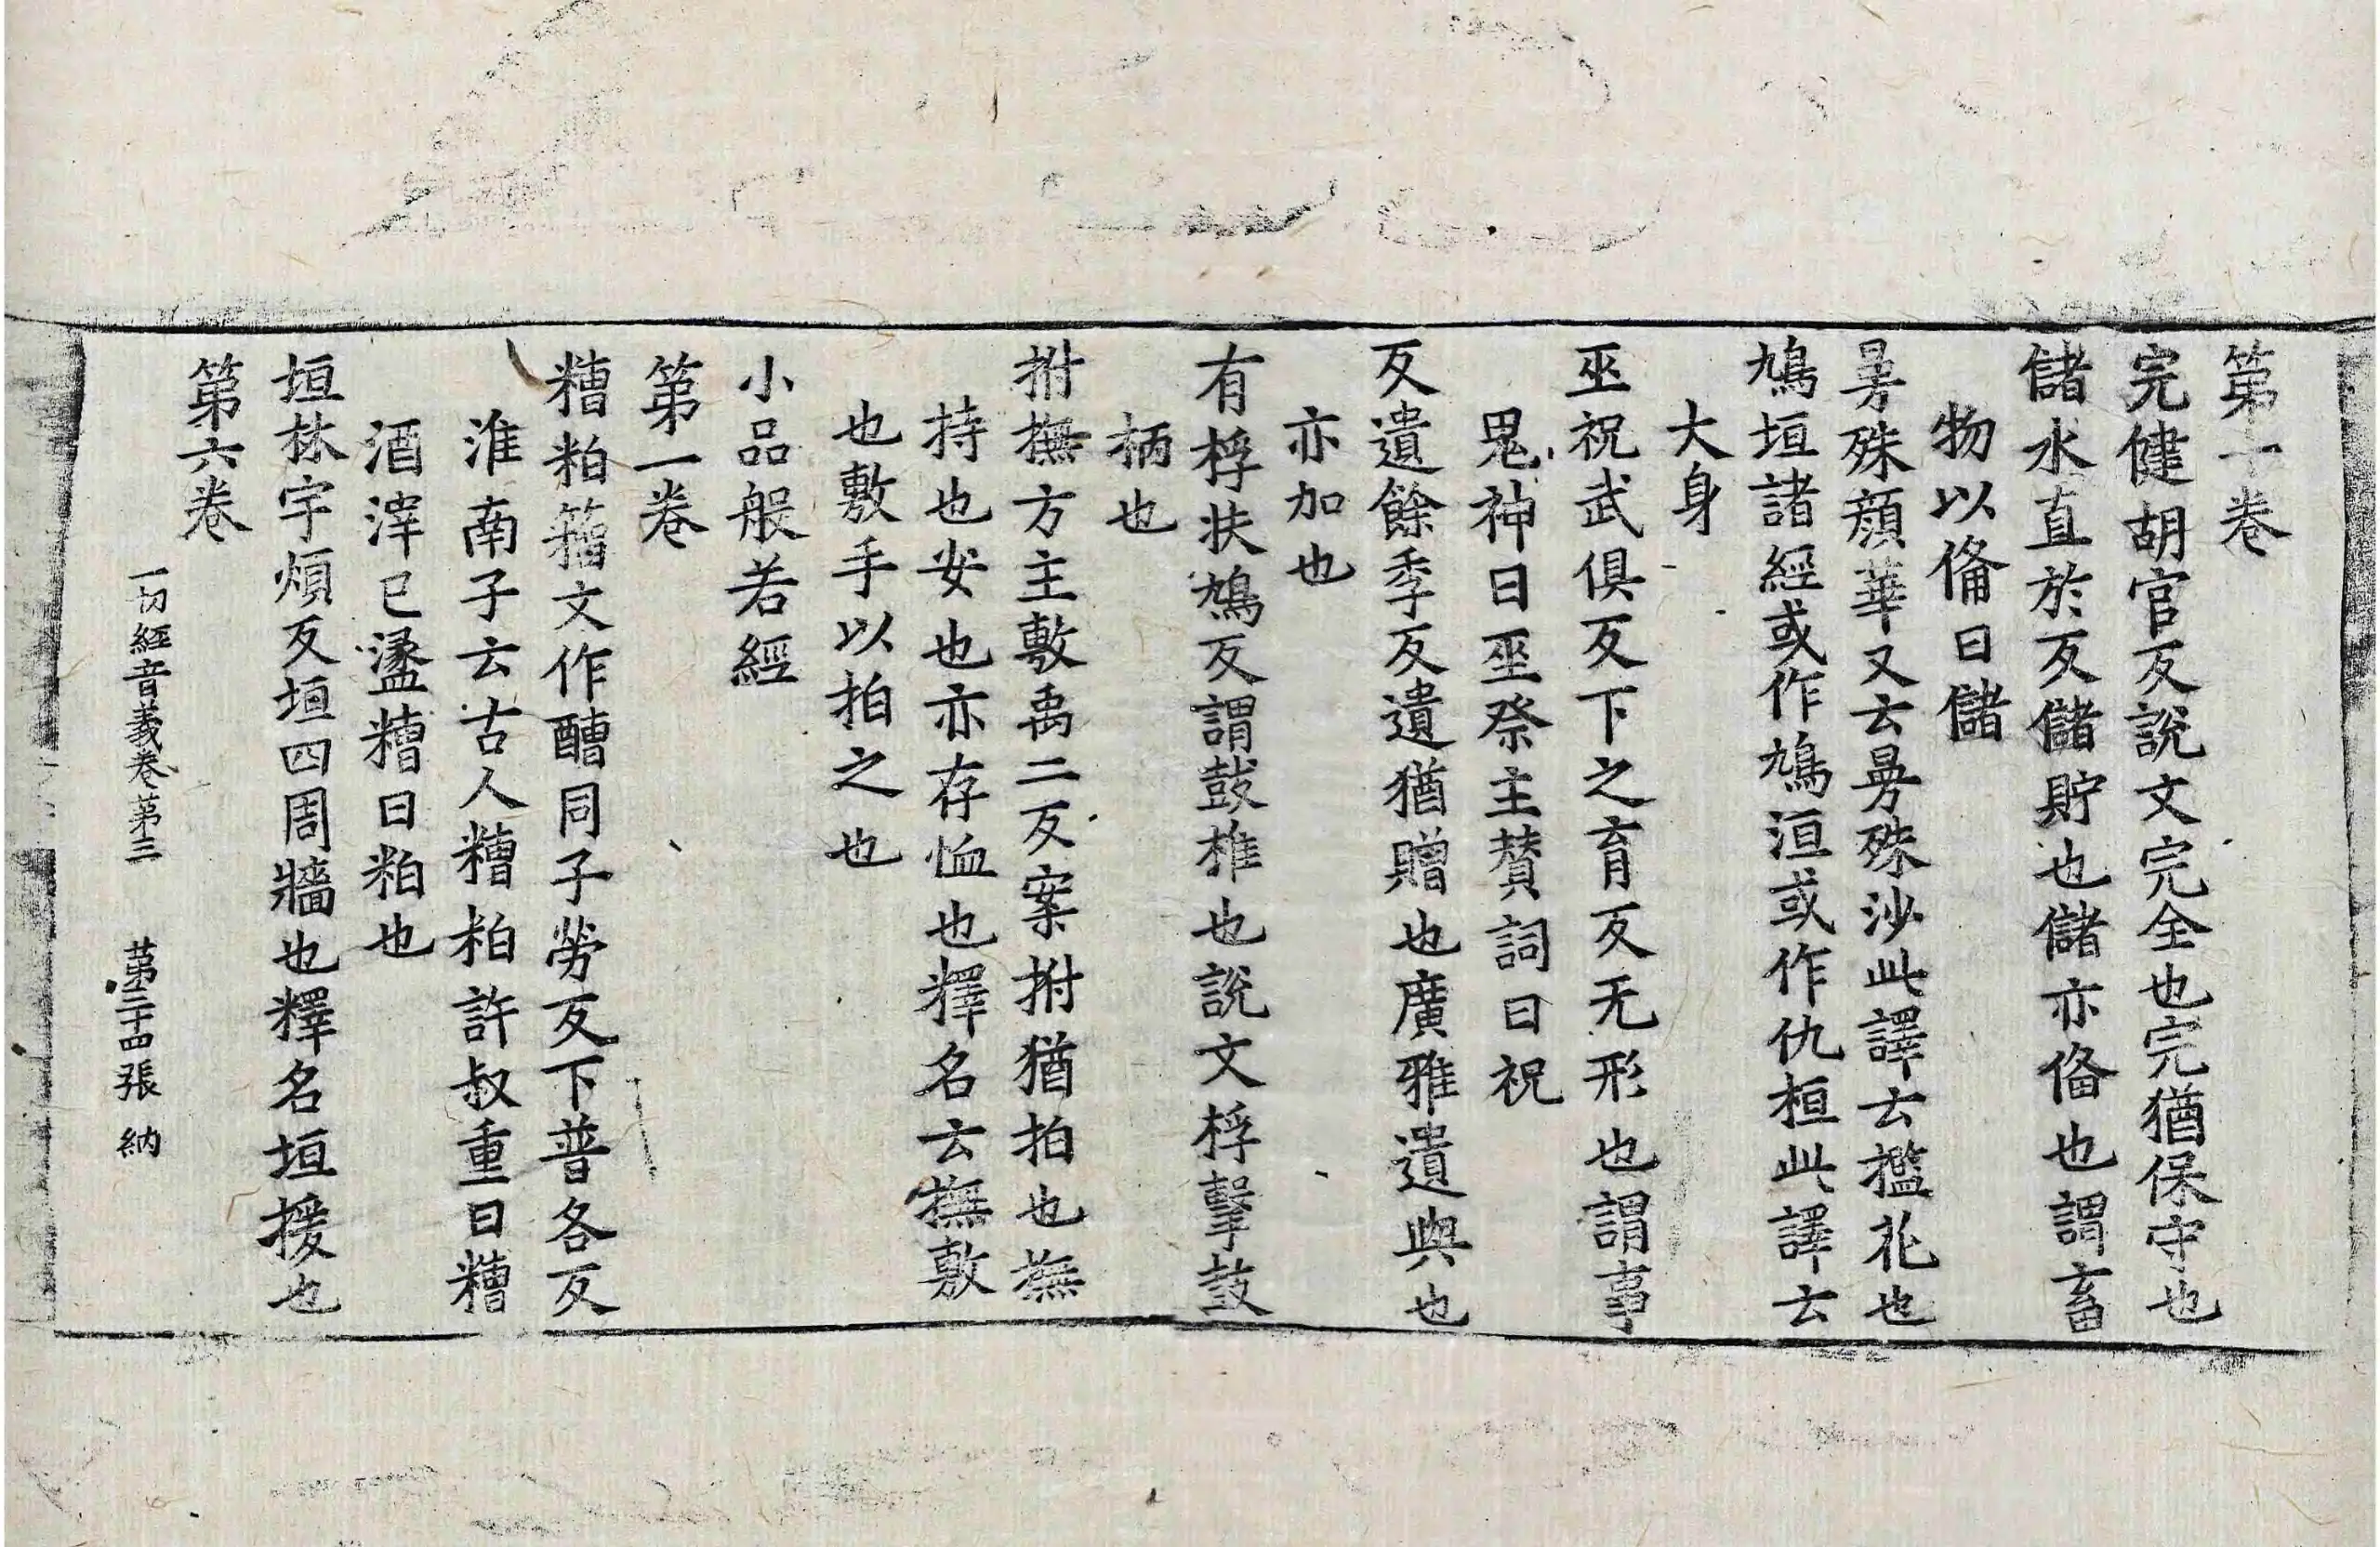 第十卷
完健胡官反說文完全也完猶保守也
儲水直於反儲貯也儲亦俻也謂畜
物以俻曰儲
昙殊顔華又云昙殊沙此譯云檻花也
鳩垣諸經或作鳩洹或作仇桓此譯云
大身
巫祝武俱反下之育反无形也謂事
鬼神曰巫祭主賛詞曰祝
反遺餘季反遺猶贈也廣雅遺與也
亦加也
有桴扶鳩反謂鼓椎也說文桴擊鼓
柄也
拊撫方主敷禹二反案拊猶拍也撫
持也安也亦存恤也釋名云撫敷
也敷手以拍之也
小品般若經
第一卷
糟粕籀文作醩同子勞反下普各反
淮南子云古人糟粕許叔重曰糟
酒滓已盪糟曰粕也
垣林宇煩反垣四周牆也釋名垣援也
第六卷
一切經音義卷第三 第二十四張 納